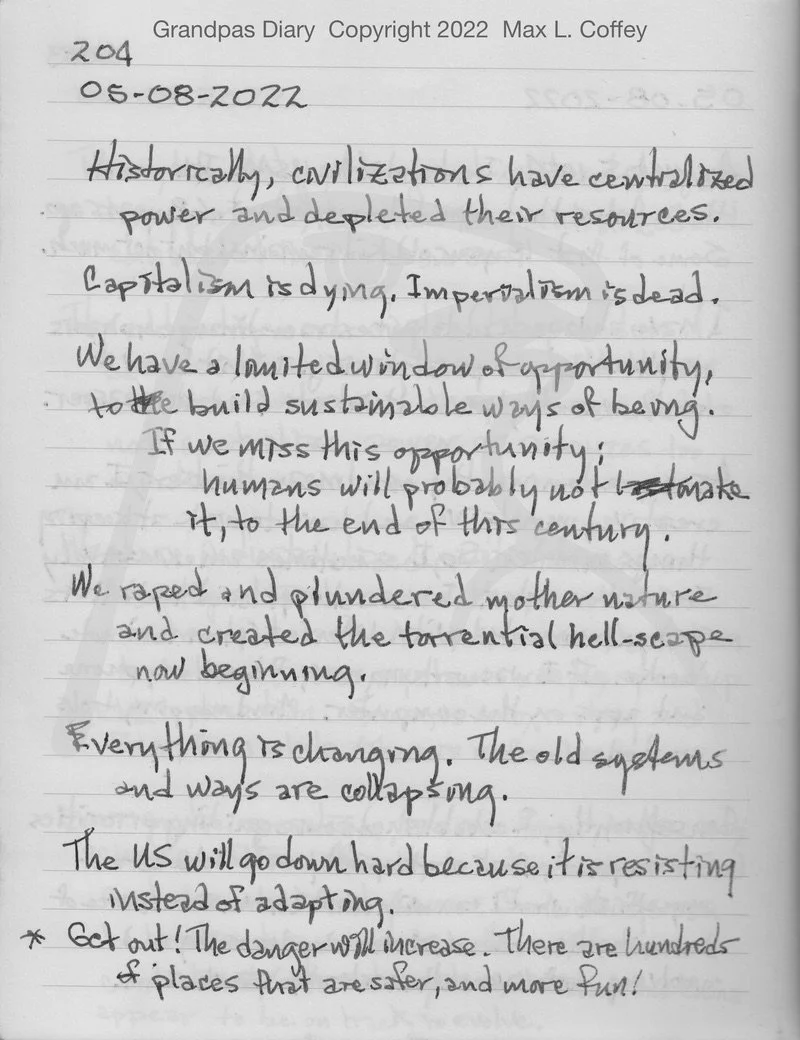 Grandpas Diary Copyright 2022 Max L. Coffey
204
05-08-2022
Historically, civilizations have centralized
power and depleted their resources.
Capitalism is dying. Imperialism is dead.
We have a limited window of opportunity,
to build sustainable ways of being.
If we miss this opportunity;
humans will probably not make
it, to the end of this century.
We raped and plundered mother nature
and created the torrential hell-scape
now beginning.
Everything is changing. The old systems
and ways are collapsing.
The US will go down hard because it is resisting
instead of adapting.
* Get out! The danger will increase. There are hundreds
of places that are safer, and more fun!